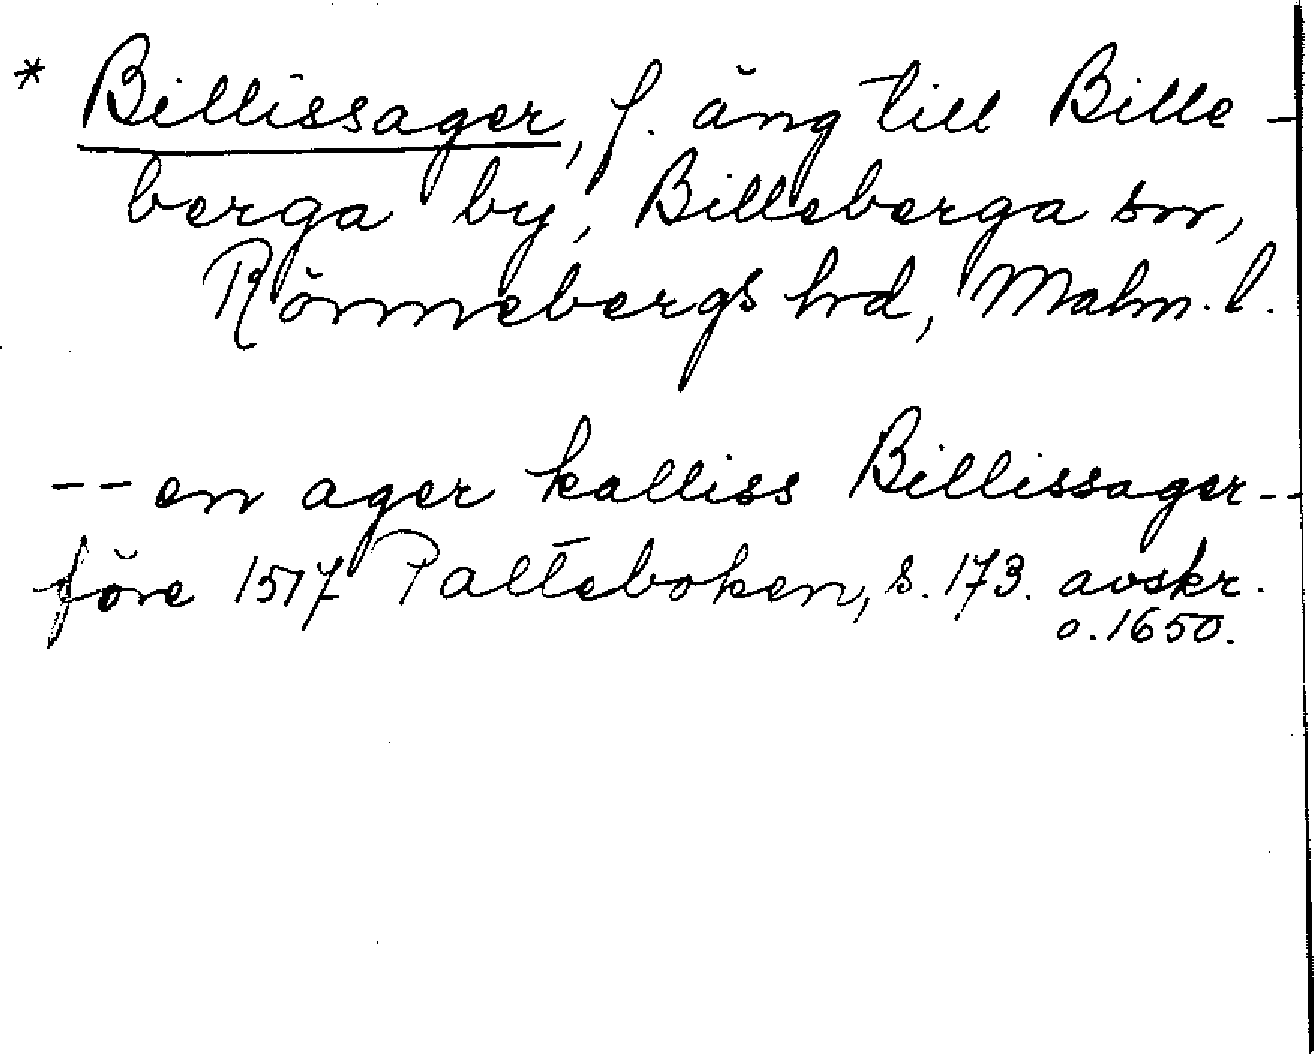 * Billissager, f. äng till Bille-
berga by, Billeberga sn,
Rönnebergs hrd, Malm. l.
-- en ager kalliss Billissager --
före 1517 Palteboken, s. 173. avskr.
o. 1650.